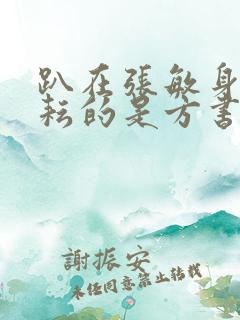 趴在張敏身
耘的是方書
謝振安
未經同意禁止轉載